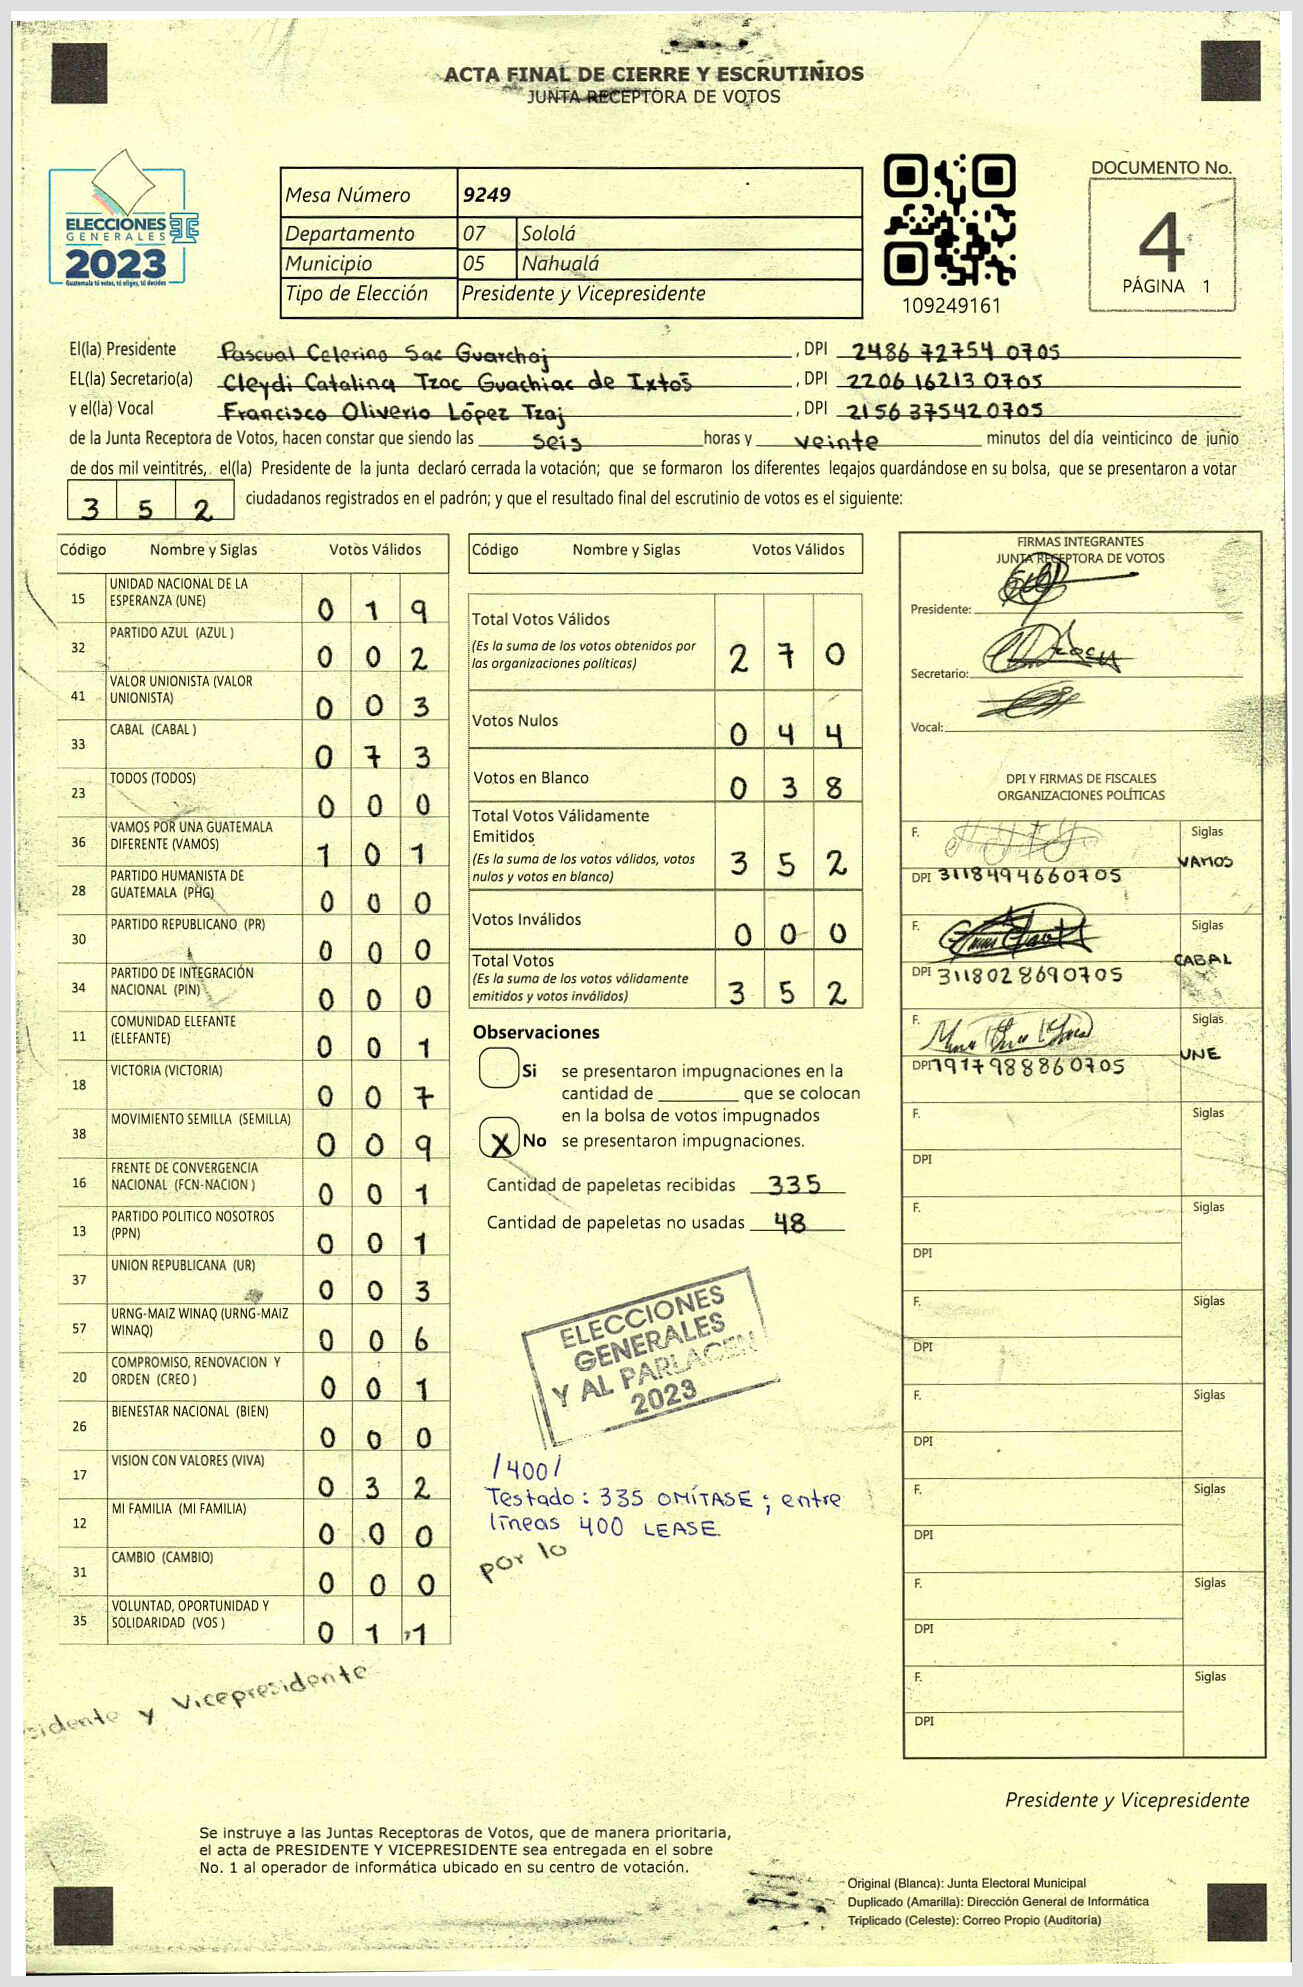 ACTA FINAL DE CIERRE Y ESCRUTINIOS
JUNTA RECEPTORA DE VOTOS
ELECCIONES
GENERALES
2023
Guatemala tú votas, tú eliges, tú decides
Mesa Número 9249
Departamento 07 Sololá
Municipio 05 Nahualá
Tipo de Elección Presidente y Vicepresidente
109249161
DOCUMENTO No.
4
PÁGINA 1
El(la) Presidente Pascual Celerino Sac Guarchaj, DPI 2486 72754 0705
EL(la) Secretario(a) Cleydi Catalina Tzoc Guachiac de Ixtos, DPI 2206 16213 0705
y el(la) Vocal Francisco Oliverio López Tzaj, DPI 2156 37542 0705
de la Junta Receptora de Votos, hacen constar que siendo las seis horas y veinte minutos del día veinticinco de junio
de dos mil veintitrés, el(la) Presidente de la junta declaró cerrada la votación; que se formaron los diferentes legajos guardándose en su bolsa, que se presentaron a votar
3 5 2 ciudadanos registrados en el padrón; y que el resultado final del escrutinio de votos es el siguiente:
Código Nombre y Siglas Votos Válidos
15 UNIDAD NACIONAL DE LA ESPERANZA (UNE) 0 1 9
32 PARTIDO AZUL (AZUL ) 0 0 2
41 VALOR UNIONISTA (VALOR UNIONISTA) 0 0 3
33 CABAL (CABAL ) 0 7 3
23 TODOS (TODOS) 0 0 0
36 VAMOS POR UNA GUATEMALA DIFERENTE (VAMOS) 1 0 1
28 PARTIDO HUMANISTA DE GUATEMALA (PHG) 0 0 0
30 PARTIDO REPUBLICANO (PR) 0 0 0
34 PARTIDO DE INTEGRACIÓN NACIONAL (PIN) 0 0 0
11 COMUNIDAD ELEFANTE (ELEFANTE) 0 0 1
18 VICTORIA (VICTORIA) 0 0 7
38 MOVIMIENTO SEMILLA (SEMILLA) 0 0 9
16 FRENTE DE CONVERGENCIA NACIONAL (FCN-NACION ) 0 0 1
13 PARTIDO POLITICO NOSOTROS (PPN) 0 0 1
37 UNION REPUBLICANA (UR) 0 0 3
57 URNG-MAIZ WINAQ (URNG-MAIZ WINAQ) 0 0 6
20 COMPROMISO, RENOVACION Y ORDEN (CREO ) 0 0 1
26 BIENESTAR NACIONAL (BIEN) 0 0 0
17 VISION CON VALORES (VIVA) 0 3 2
12 MI FAMILIA (MI FAMILIA) 0 0 0
31 CAMBIO (CAMBIO) 0 0 0
35 VOLUNTAD, OPORTUNIDAD Y SOLIDARIDAD (VOS ) 0 1 1
sidente y Vicepresidente
Código Nombre y Siglas Votos Válidos
Total Votos Válidos 2 7 0
(Es la suma de los votos obtenidos por
las organizaciones políticas)
Votos Nulos 0 4 4
Votos en Blanco 0 3 8
Total Votos Válidamente
Emitidos 3 5 2
(Es la suma de los votos válidos, votos
nulos y votos en blanco)
Votos Inválidos 0 0 0
Total Votos 3 5 2
(Es la suma de los votos válidamente
emitidos y votos inválidos)
Observaciones
Si se presentaron impugnaciones en la
cantidad de ________ que se colocan
en la bolsa de votos impugnados
X No se presentaron impugnaciones.
Cantidad de papeletas recibidas 335
Cantidad de papeletas no usadas 48
ELECCIONES
GENERALES
Y AL PARLACEN
2023
/400/
Testado: 335 OMÍTASE; entre
líneas 400 LEASE.
por lo
FIRMAS INTEGRANTES
JUNTA RECEPTORA DE VOTOS
Presidente:
Secretario:
Vocal:
DPI Y FIRMAS DE FISCALES
ORGANIZACIONES POLÍTICAS
F. Siglas
VAMOS
DPI 3118494660705
F. Siglas
CABAL
DPI 3118028690705
F. Siglas
UNE
DPI 1917988860705
F. Siglas
DPI
F. Siglas
DPI
F. Siglas
DPI
F. Siglas
DPI
F. Siglas
DPI
F. Siglas
DPI
F. Siglas
DPI
Presidente y Vicepresidente
Se instruye a las Juntas Receptoras de Votos, que de manera prioritaria,
el acta de PRESIDENTE Y VICEPRESIDENTE sea entregada en el sobre
No. 1 al operador de informática ubicado en su centro de votación.
Original (Blanca): Junta Electoral Municipal
Duplicado (Amarilla): Dirección General de Informática
Triplicado (Celeste): Correo Propio (Auditoría)